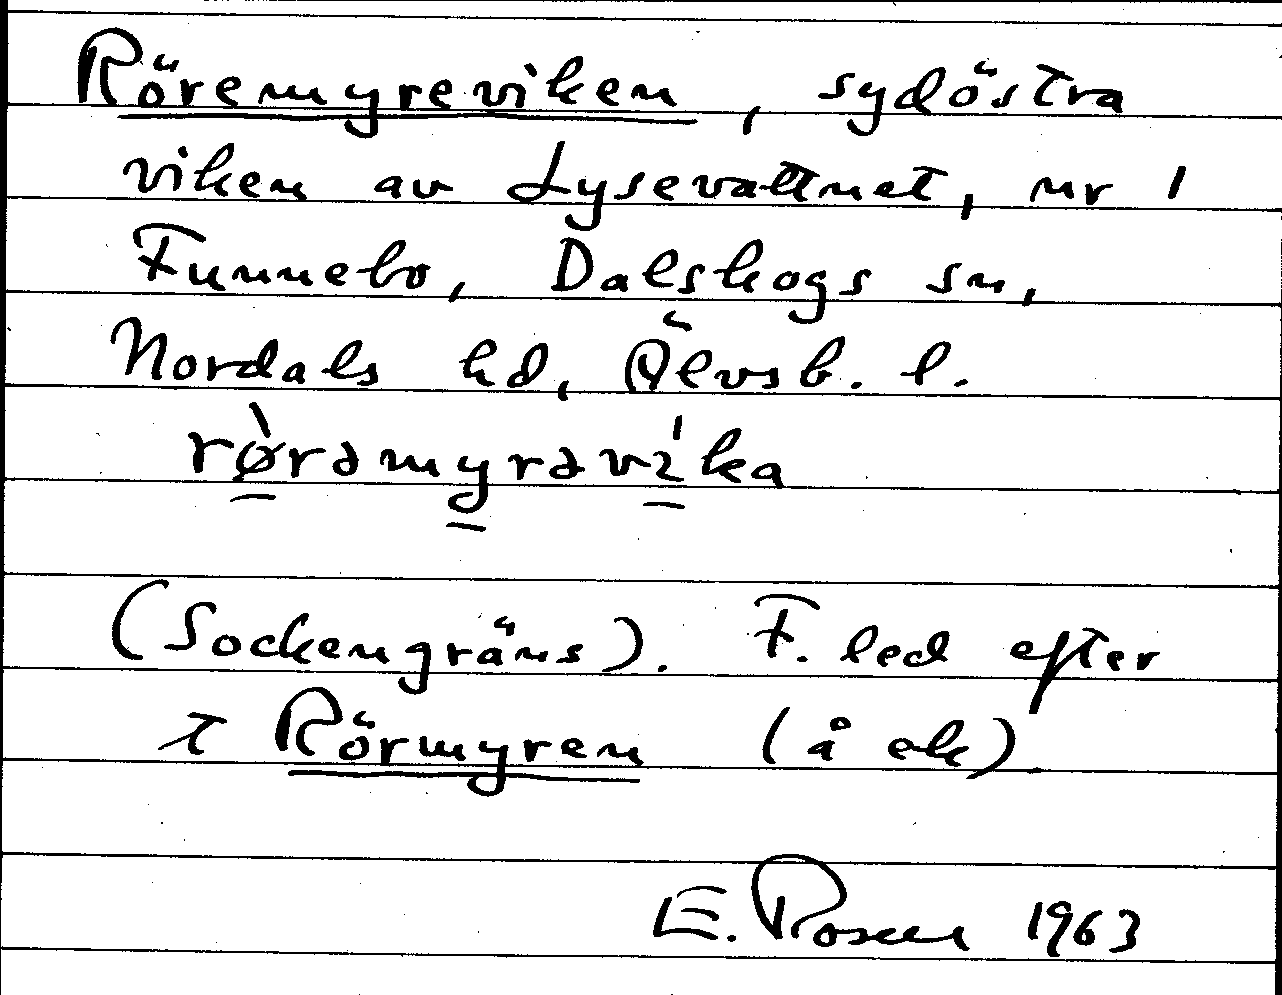 Röremyreviken, sydöstra
viken av Lysevattnet, nr 1
Funnebo, Dalskogs sn,
Nordals hd, Älvsb. l.
rø̀rəmyrəvíka
(Sockengräns). F. led efter
t Rörmyren (å ek)
E. Rosen 1963